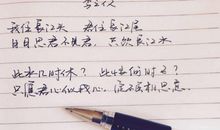 李之仪
我住长江头 君住长江尾
日日思君不见君,共饮长江水
此水几时休?此恨何时已?
只愿君心似我心,定不负相思意.